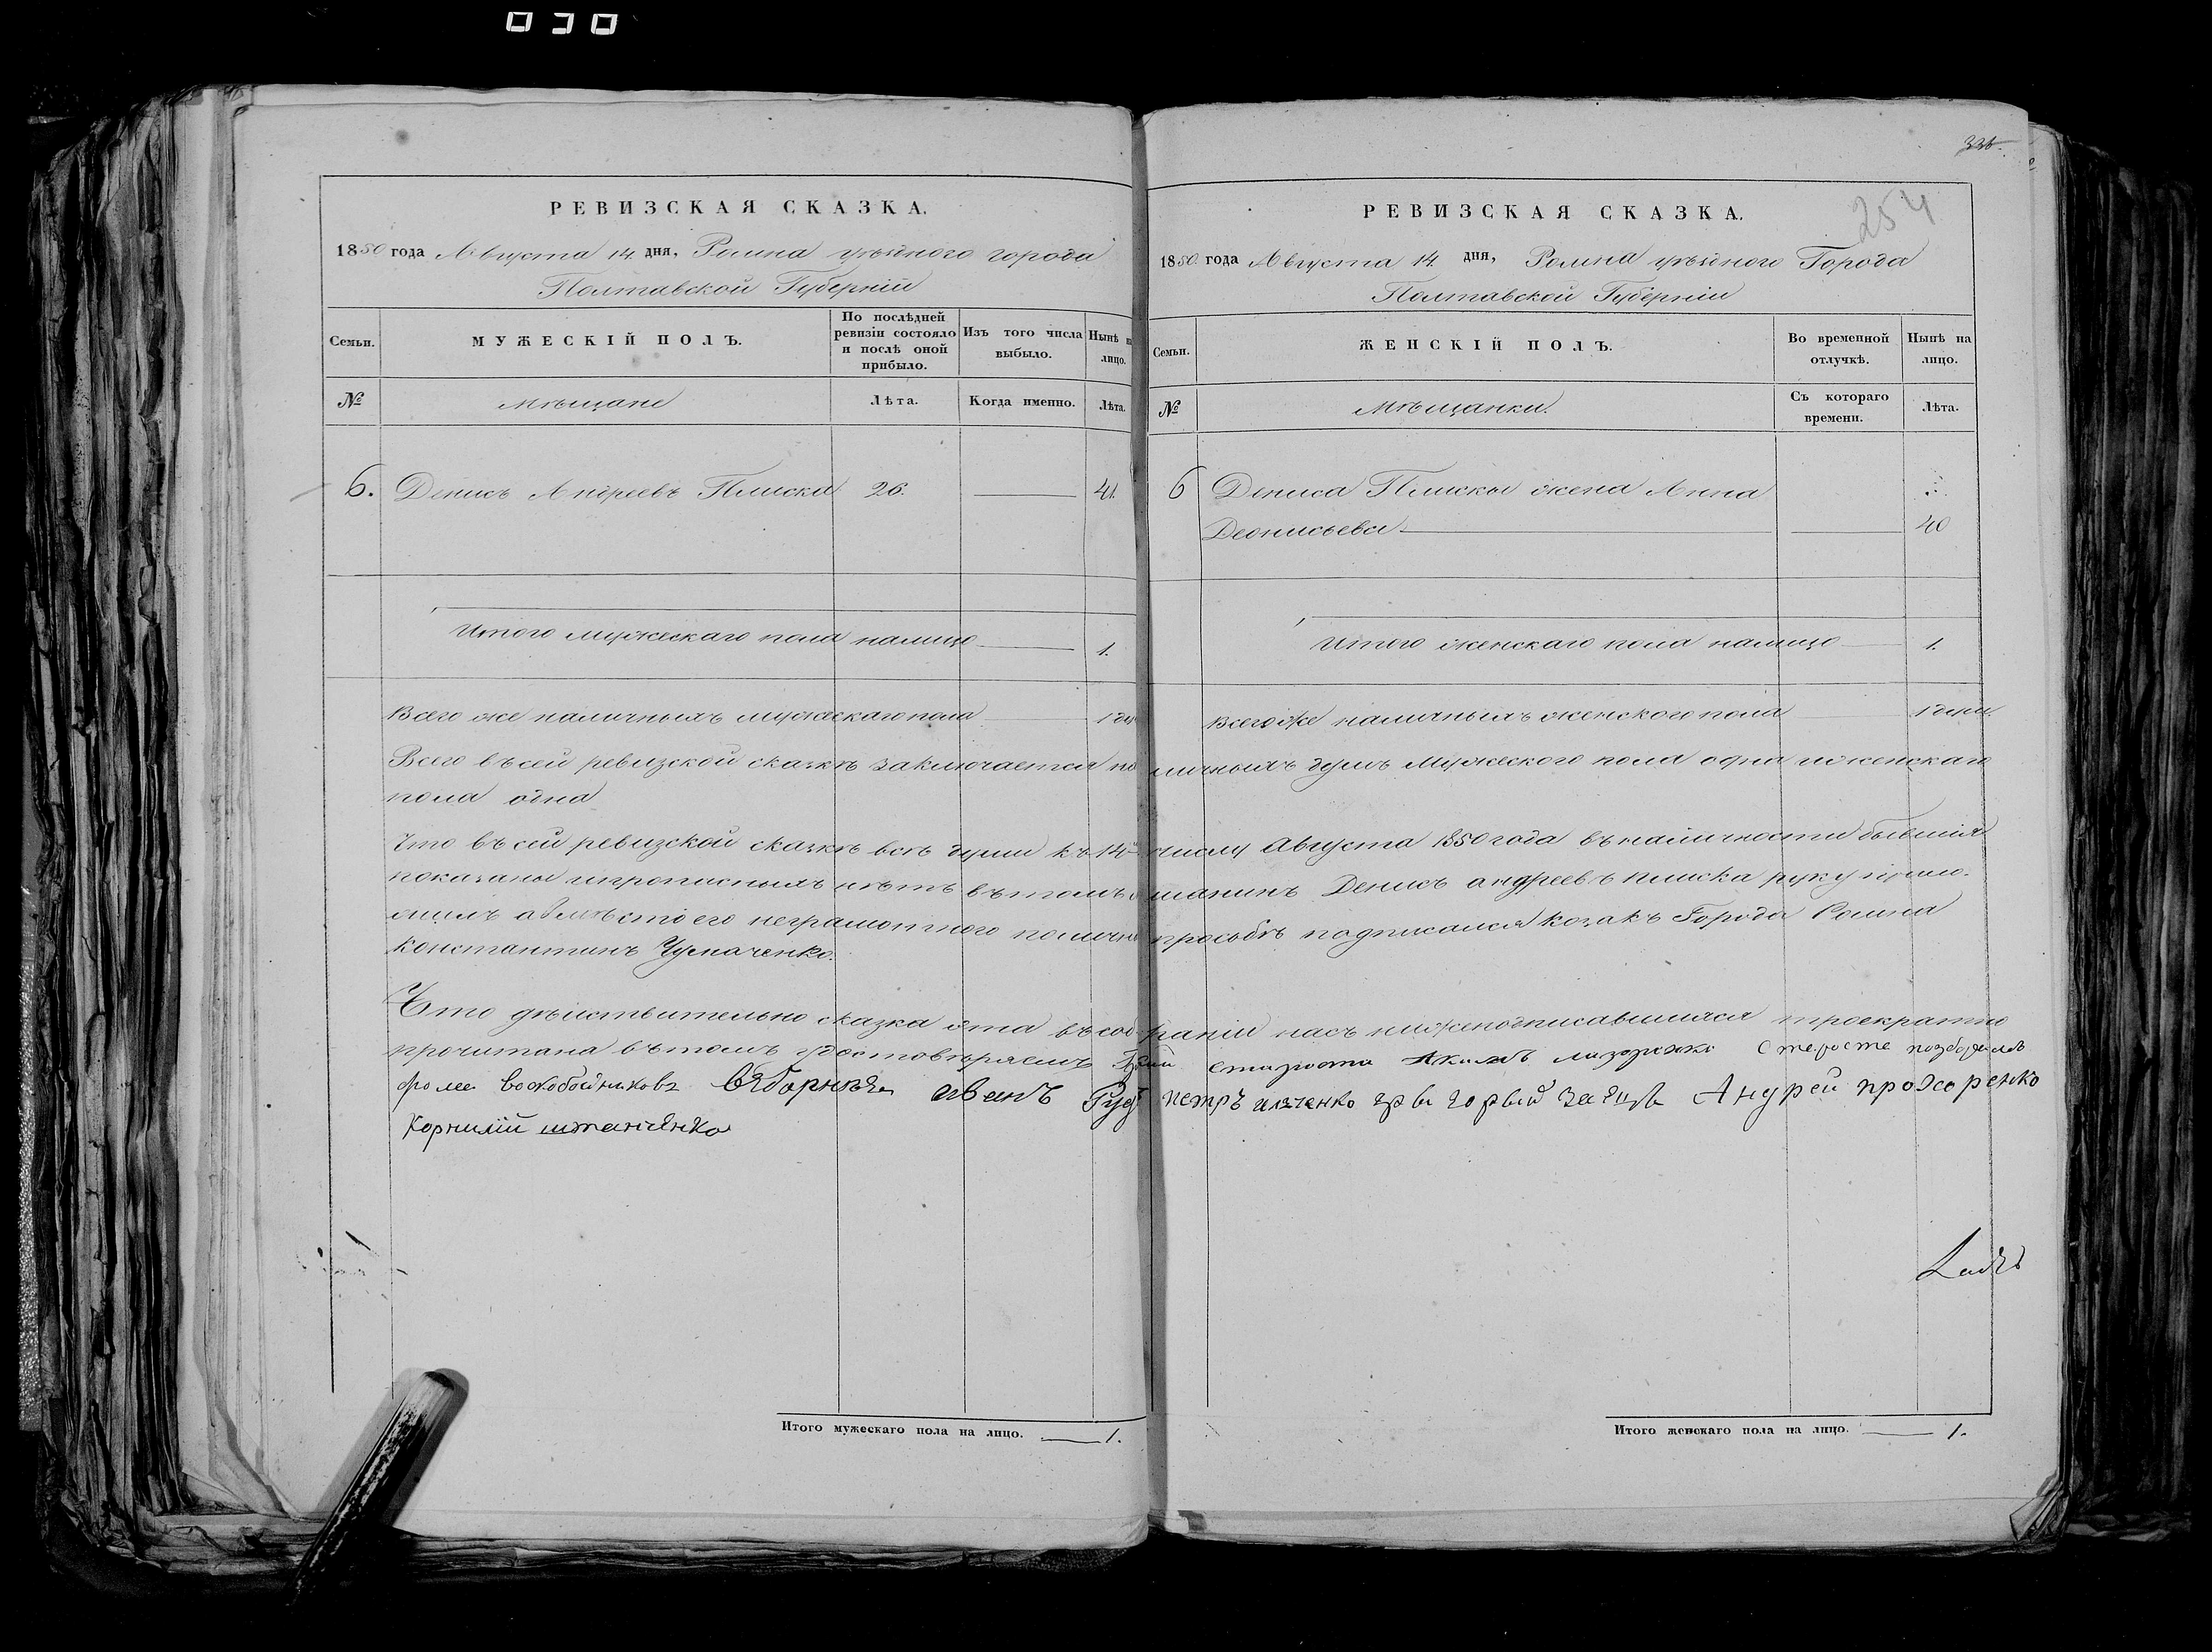 РЕВИЗСКАЯ СКАЗКА.
1850 года Августа 14 дня, Ромна уѣзного города
Полтавской Губерніи
Семьи.
МУЖЕСКІЙ ПОЛЪ.
По послѣдней ревизіи состояло и послѣ оной прибыло.
Изъ того числа выбыло.
Нынѣ на лицо.
№
Мѣщане
Лѣта.
Когда именно.
Лѣта.
6. Денисъ Андреевъ Плиска 26. 41.
Итого мужескаго пола налицо 1.
Всего же наличныхъ мужескаго пола 1
Итого мужескаго пола на лицо. 1.
254
РЕВИЗСКАЯ СКАЗКА.
1850 года Августа 14 дня, Ромна уѣзного Города
Полтавской Губерніи
Семьи.
ЖЕНСКІЙ ПОЛЪ.
Во временной отлучкѣ.
Нынѣ на лицо.
№
Мѣщанки.
Съ котораго времени.
Лѣта.
6 Дениса Плиски жена Анна
Деонисьева 40
Итого женскаго пола налицо 1.
Всего же наличныхъ женского пола 1 душа
Всего въ сей ревизской сказкѣ заключается наличныхъ душъ Мужеского пола одна и женскаго
пола одна
Что въ сей ревизской сказкѣ всѣ души къ 14 числу Августа 1850 года въ наличности бывшія
показаны и прописныхъ нѣтъ въ томъ Денисъ андреевъ плиска руку прило-
жилъ а вмѣсто его неграмотного по личной прозьбѣ подписался козакъ Города Ромна
Константинъ Чумаченко.
Что дѣйствительно сказка эта въ собраніи насъ нижеподписавшихся троекратно
прочитана въ томъ удостовѣряемъ староста
фома воскобойниковъ выборные иванъ петръ Андрей прохоренко
Корнилій
Итого женскаго пола на лицо. 1.